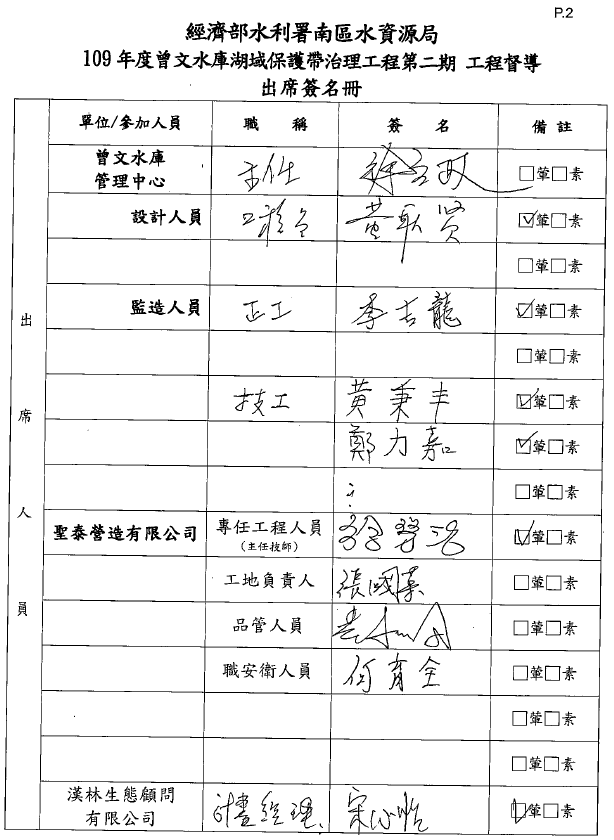 P.2
經濟部水利署南區水資源局
109年度曾文水庫湖域保護帶治理工程第二期 工程督導
出席簽名冊
出席人員
單位/參加人員 職稱 簽名 備註
曾文水庫
管理中心 主任 □葷□素
設計人員 工程員 黃耿賢 ☑葷□素
□葷□素
監造人員 正工 李吉龍 ☑葷□素
□葷□素
技工 黃秉丰 ☑葷□素
鄭力嘉 ☑葷□素
□葷□素
聖泰營造有限公司 專任工程人員 ☑葷□素
(主任技師)
工地負責人 張國棻 □葷□素
品管人員 □葷□素
職安衛人員 何育全 □葷□素
□葷□素
□葷□素
漢林生態顧問
有限公司 計畫經理 宋心怡 ☑葷□素